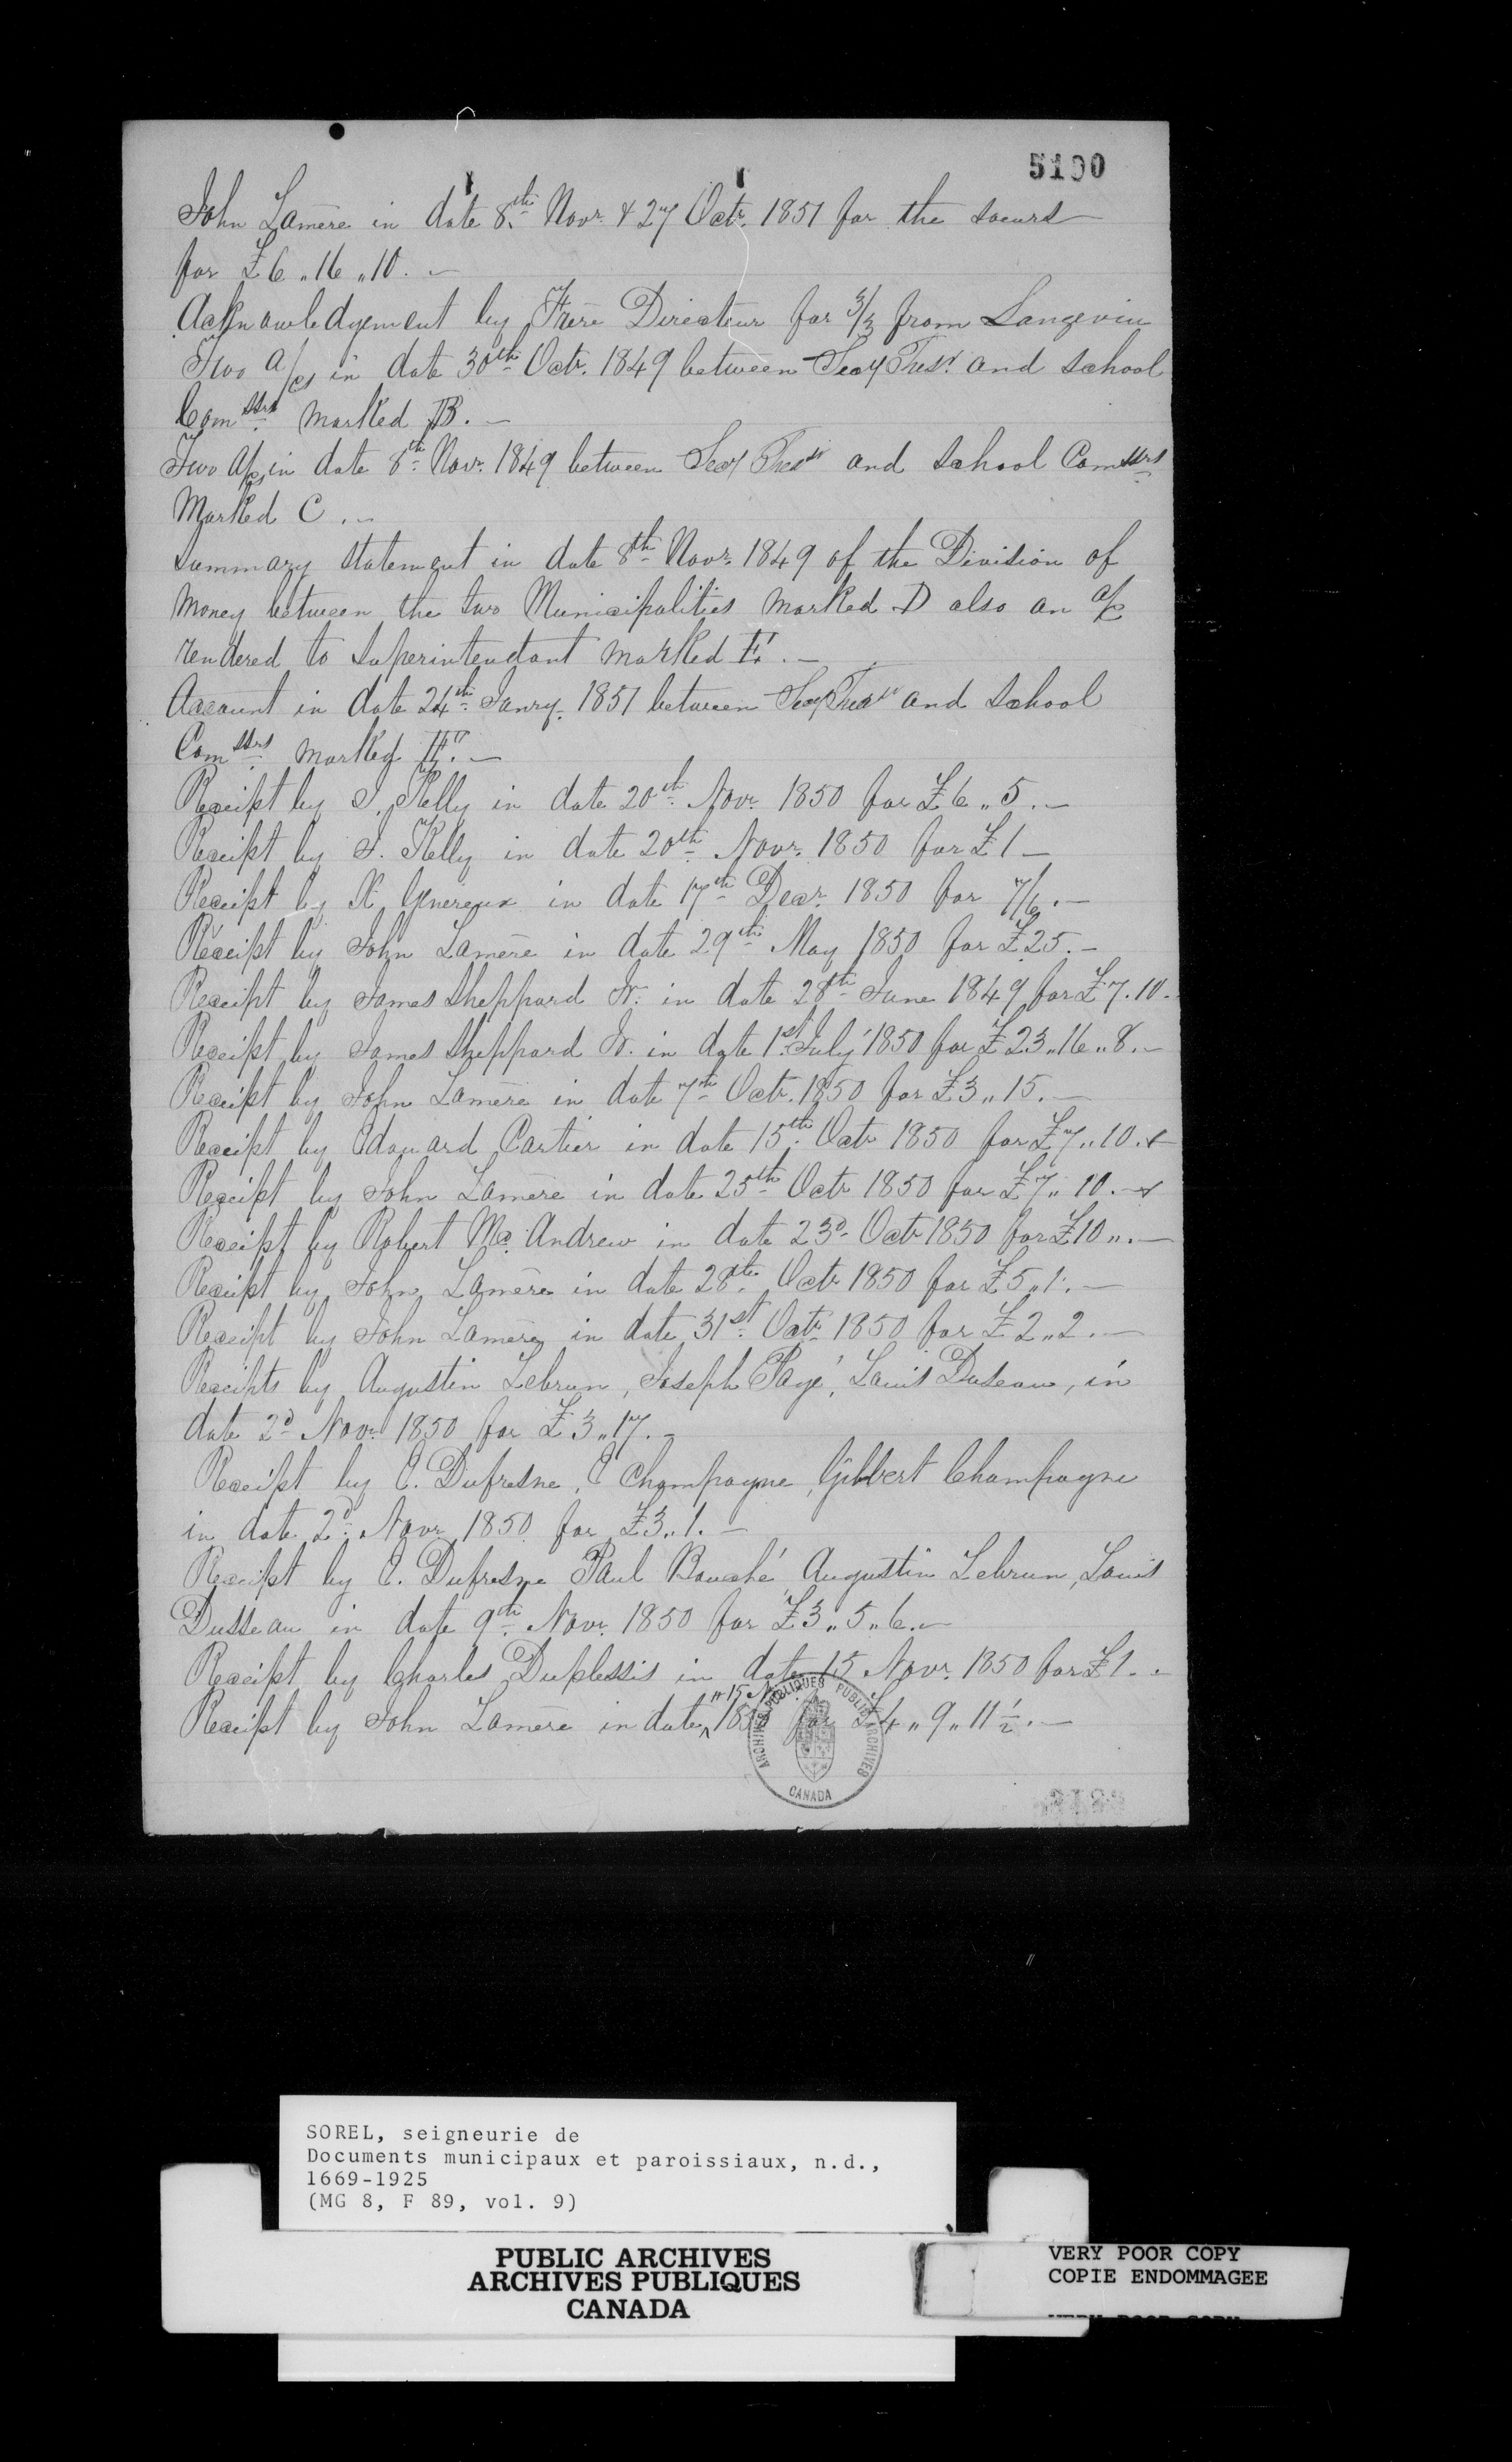 5190
John Lamère in date 8th Novr. & 27 Octr. 1851 for the soeurs
for £6 „ 16 „ 10. —
Acknowledgement by Frère Directeur for 3/3 from Langevin
Two a/cs in date 30th Octr. 1849 between Secy Tresr. and school
Comssrs marked B. —
Two a/cs in date 8th Novr. 1849 between Secy Tresr and School Comssrs
Marked C. —
Summary statement in date 8th Novr. 1849 of the Division of
Money between the two Municipalities marked D also an a/c
rendered to Superintendant marked E. —
Account in date 24th Janry. 1851 between Secy Tresr and School
Comssrs marked F. —
Receipt by J. Kelly in date 20th Novr. 1850 for £6 „ 5. —
Receipt by J. Kelly in date 20th Novr. 1850 for £1 —
Receipt by X Genereux in date 17th Decr. 1850 for 7/6. —
Receipt by John Lamère in date 29th May 1850 for £25. —
Receipt by James Sheppard Jr. in date 28th June 1849 for £7. 10.
Receipt by James Sheppard Jr. in date 1st July 1850 for £23 „ 16 „ 8. —
Receipt by John Lamère in date 7th Octr. 1850 for £3 „ 15. —
Receipt by Edouard Cartier in date 15th Octr 1850 for £7 „ 10. x
Receipt by John Lamère in date 25th Octr 1850 for £7 „ 10. x
Receipt by Robert Mc. Andrew in date 23d Octr 1850 for £10 „. —
Receipt by John Lamère in date 28th Octr 1850 for £5 „ 1. —
Receipt by John Lamère in date 31st Octr 1850 for £2 „ 2. —
Receipts by Augustin Lebrun, Joseph Pagé, Louis Duseau, in
date 2d Novr. 1850 for £3 „ 17. —
Receipt by E. Dufresne, E Champagne, Gilbert Champagne
in date 2d Novr 1850 for £3 „ 1. —
Receipt by E. Dufresne Paul Bouché Augustin Lebrun, Louis
Dusseau in date 9th Novr. 1850 for £3 „ 5 „ 6. —
Receipt by Charles Duplessis in date 15 Novr. 1850 for £1. —
" 15 N
Receipt by John Lamère in date ^ 185 for £4 „ 9 „ 11 ½. —
ARCHIVES PUBLIQUES PUBLIC ARCHIVES
CANADA
SOREL, seigneurie de
Documents municipaux et paroissiaux, n.d.,
1669-1925
(MG 8, F 89, vol. 9)
PUBLIC ARCHIVES
ARCHIVES PUBLIQUES
CANADA
VERY POOR COPY
COPIE ENDOMMAGEE
VERY POOR COPY